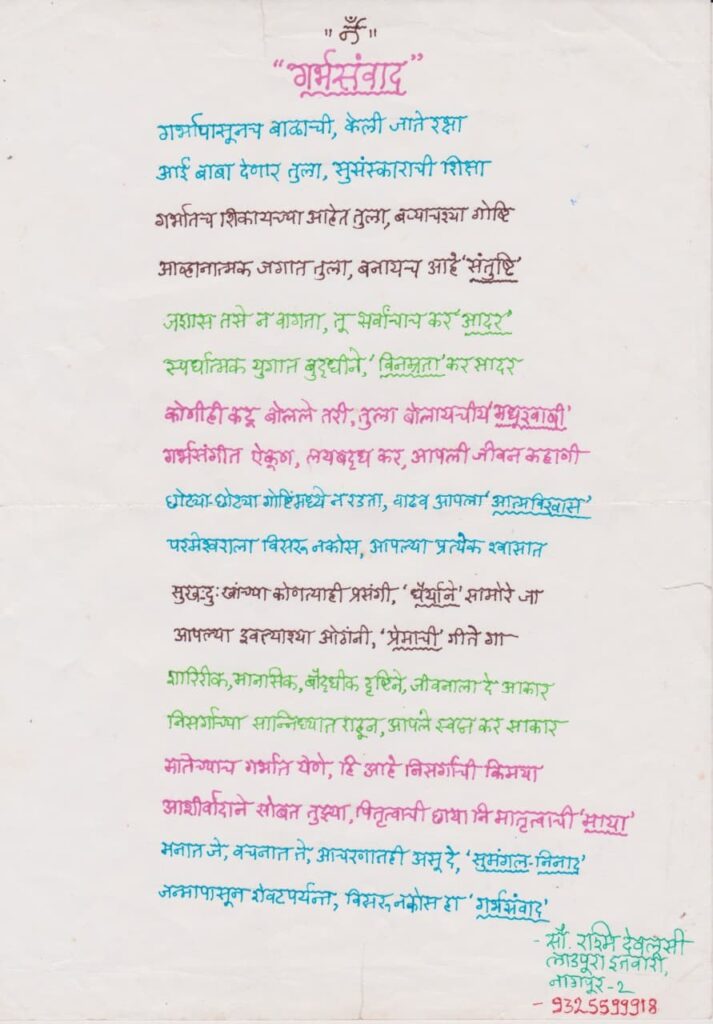 "ॐ"
"गर्भसंवाद"
गर्भापासूनच बाळाची, केली जाते रक्षा
आई बाबा देणार तुला, सुसंस्काराची शिक्षा
गर्भातच शिकायच्या आहेत तुला, बऱ्याचश्या गोष्टि
आव्हानात्मक जगात तुला, बनायच आहे 'संतुष्टि'
जशास तसे न वागता, तू सर्वांचाच कर 'आदर'
स्पर्धात्मक युगात बुद्धीने, 'विनम्रता' कर सादर
कोणीही कटू बोलले तरी, तुला बोलायचीय 'मधूरवाणी'
गर्भसंगीत ऐकूण, लयबद्ध कर, आपली जीवन कहाणी
छोट्या-छोट्या गोष्टिंमध्ये न रडता, वाढव आपला 'आत्मविश्वास'
परमेश्वराला विसरू नकोस, आपल्या प्रत्येक श्वासात
सुख-दुःखांच्या कोणत्याही प्रसंगी, 'धैर्याने' सामोरे जा
आपल्या इवल्याश्या ओठांनी, 'प्रेमाची' गीते गा
शारिरीक, मानसिक, बौद्धीक दृष्टिने, जीवनाला दे आकार
निसर्गाच्या सान्निध्यात राहून, आपले स्वप्न कर साकार
मातेच्याच गर्भात येणे, हि आहे निसर्गाची किमया
आशीर्वादाने सोबत तुझ्या, पितृत्वाची छाया नि मातृत्वाची 'माया'
मनात जे, वचनात ते, आचरणातही असू दे, 'सुमंगल-निनाद'
जन्मापासून शेवटपर्यन्त, विसरू नकोस हा 'गर्भसंवाद'
- सौ. रश्मि देवलसी
लाडपुरा इतवारी,
नागपूर - २
- 9325599918